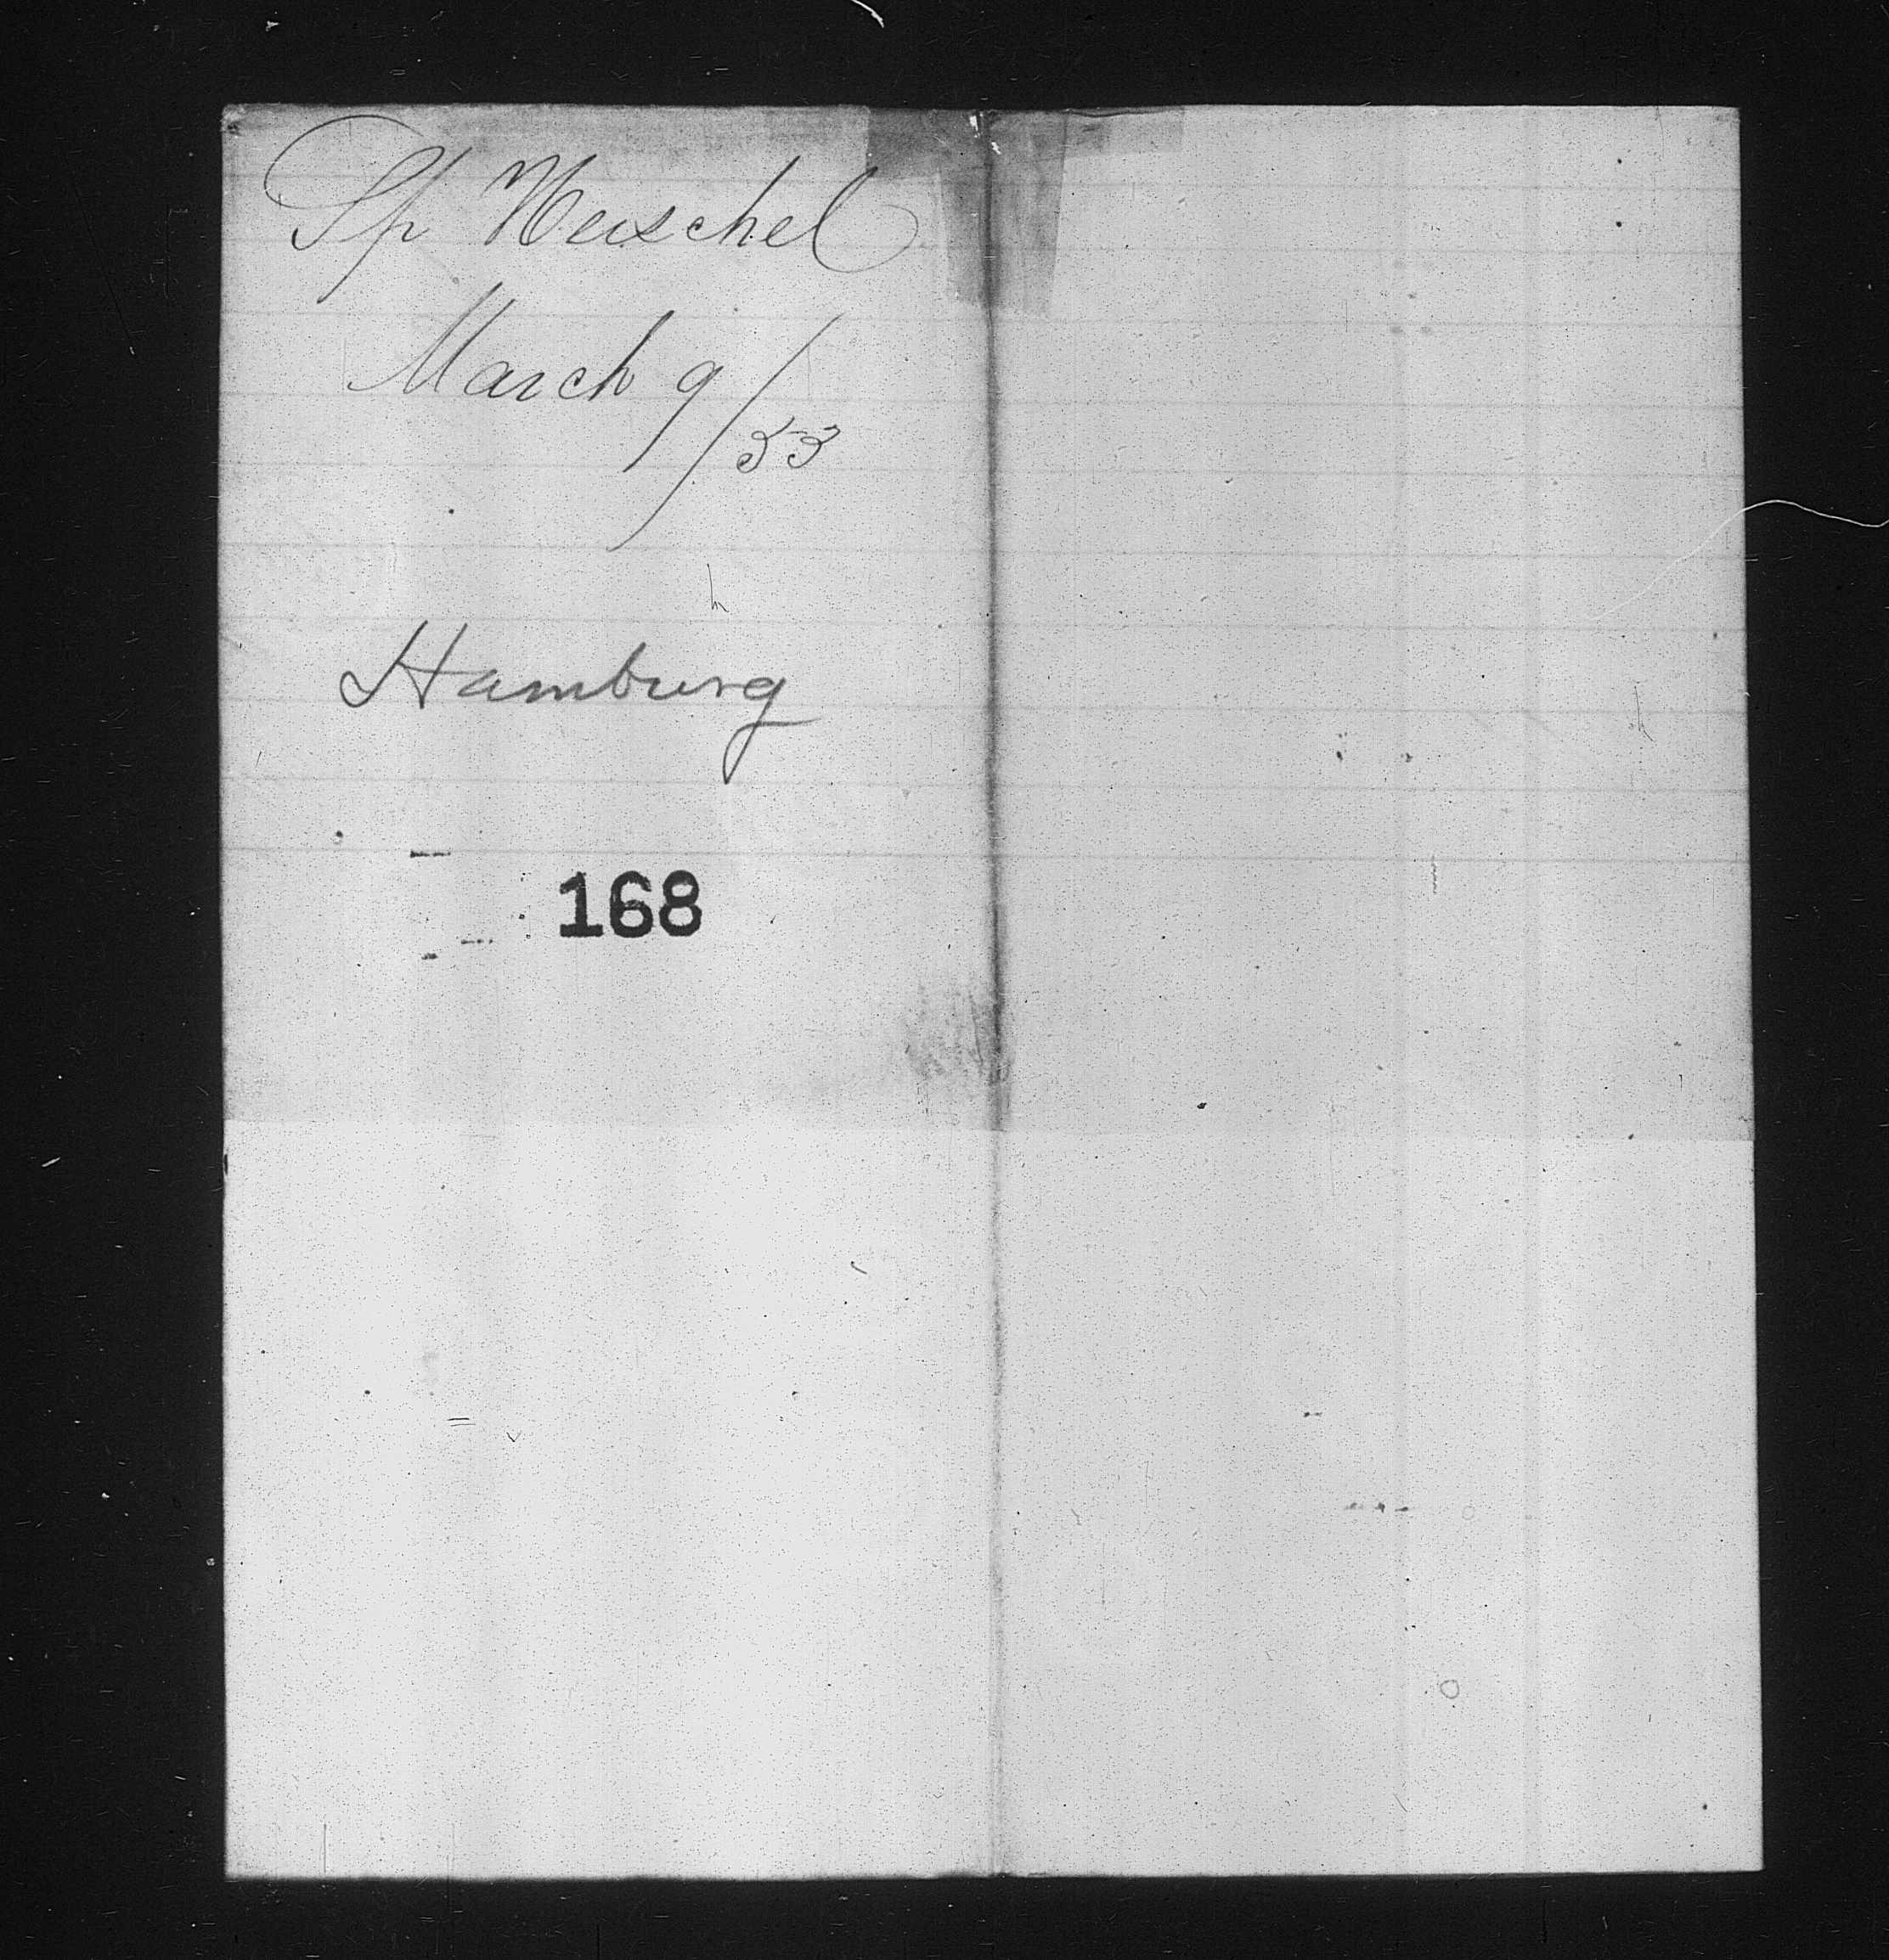 Sp Herschel
March 9/53
Hamburg
168